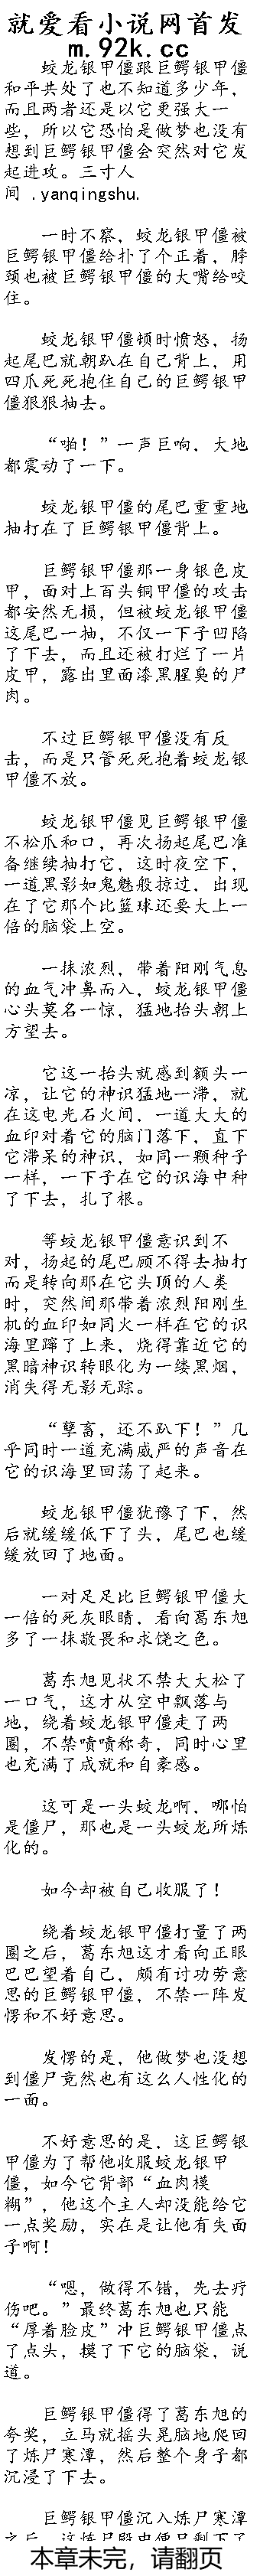 就爱看小说网首发
m.92k.cc
蛟龙银甲僵跟巨鳄银甲僵
和平共处了也不知道多少年，
而且两者还是以它更强大一
些，所以它恐怕是做梦也没有
想到巨鳄银甲僵会突然对它发
起进攻。三寸人
间 .yanqingshu.
一时不察，蛟龙银甲僵被
巨鳄银甲僵给扑了个正着，脖
颈也被巨鳄银甲僵的大嘴给咬
住。
蛟龙银甲僵顿时愤怒，扬
起尾巴就朝趴在自己背上，用
四爪死死抱住自己的巨鳄银甲
僵狠狠抽去。
“啪！”一声巨响，大地
都震动了一下。
蛟龙银甲僵的尾巴重重地
抽打在了巨鳄银甲僵背上。
巨鳄银甲僵那一身银色皮
甲，面对上百头铜甲僵的攻击
都安然无损，但被蛟龙银甲僵
这尾巴一抽，不仅一下子凹陷
了下去，而且还被打烂了一片
皮甲，露出里面漆黑腥臭的尸
肉。
不过巨鳄银甲僵没有反
击，而是只管死死抱着蛟龙银
甲僵不放。
蛟龙银甲僵见巨鳄银甲僵
不松爪和口，再次扬起尾巴准
备继续抽打它，这时夜空下，
一道黑影如鬼魅般掠过，出现
在了它那个比篮球还要大上一
倍的脑袋上空。
一抹浓烈，带着阳刚气息
的血气冲鼻而入，蛟龙银甲僵
心头莫名一惊，猛地抬头朝上
方望去。
它这一抬头就感到额头一
凉，让它的神识猛地一滞，就
在这电光石火间，一道大大的
血印对着它的脑门落下，直下
它滞呆的神识，如同一颗种子
一样，一下子在它的识海中种
了下去，扎了根。
等蛟龙银甲僵意识到不
对，扬起的尾巴顾不得去抽打
而是转向那在它头顶的人类
时，突然间那带着浓烈阳刚生
机的血印如同火一样在它的识
海里蹿了上来，烧得靠近它的
黑暗神识转眼化为一缕黑烟，
消失得无影无踪。
“孽畜，还不趴下！”几
乎同时一道充满威严的声音在
它的识海里回荡了起来。
蛟龙银甲僵犹豫了下，然
后就缓缓低下了头，尾巴也缓
缓放回了地面。
一对足足比巨鳄银甲僵大
一倍的死灰眼睛，看向葛东旭
多了一抹敬畏和求饶之色。
葛东旭见状不禁大大松了
一口气，这才从空中飘落与
地，绕着蛟龙银甲僵走了两
圈，不禁啧啧称奇，同时心里
也充满了成就和自豪感。
这可是一头蛟龙啊，哪怕
是僵尸，那也是一头蛟龙所炼
化的。
如今却被自己收服了！
绕着蛟龙银甲僵打量了两
圈之后，葛东旭这才看向正眼
巴巴望着自己，颇有讨功劳意
思的巨鳄银甲僵，不禁一阵发
愣和不好意思。
发愣的是，他做梦也没想
到僵尸竟然也有这么人性化的
一面。
不好意思的是，这巨鳄银
甲僵为了帮他收服蛟龙银甲
僵，如今它背部“血肉模
糊”，他这个主人却没能给它
一点奖励，实在是让他有失面
子啊！
“嗯，做得不错，先去疗
伤吧。”最终葛东旭也只能
“厚着脸皮”冲巨鳄银甲僵点
了点头，摸了下它的脑袋，说
道。
巨鳄银甲僵得了葛东旭的
夸奖，立马就摇头晃脑地爬回
了炼尸寒潭，然后整个身子都
沉浸了下去。
巨鳄银甲僵沉入炼尸寒潭
之后，这炼尸殿中便只剩下了
本章未完，请翻页